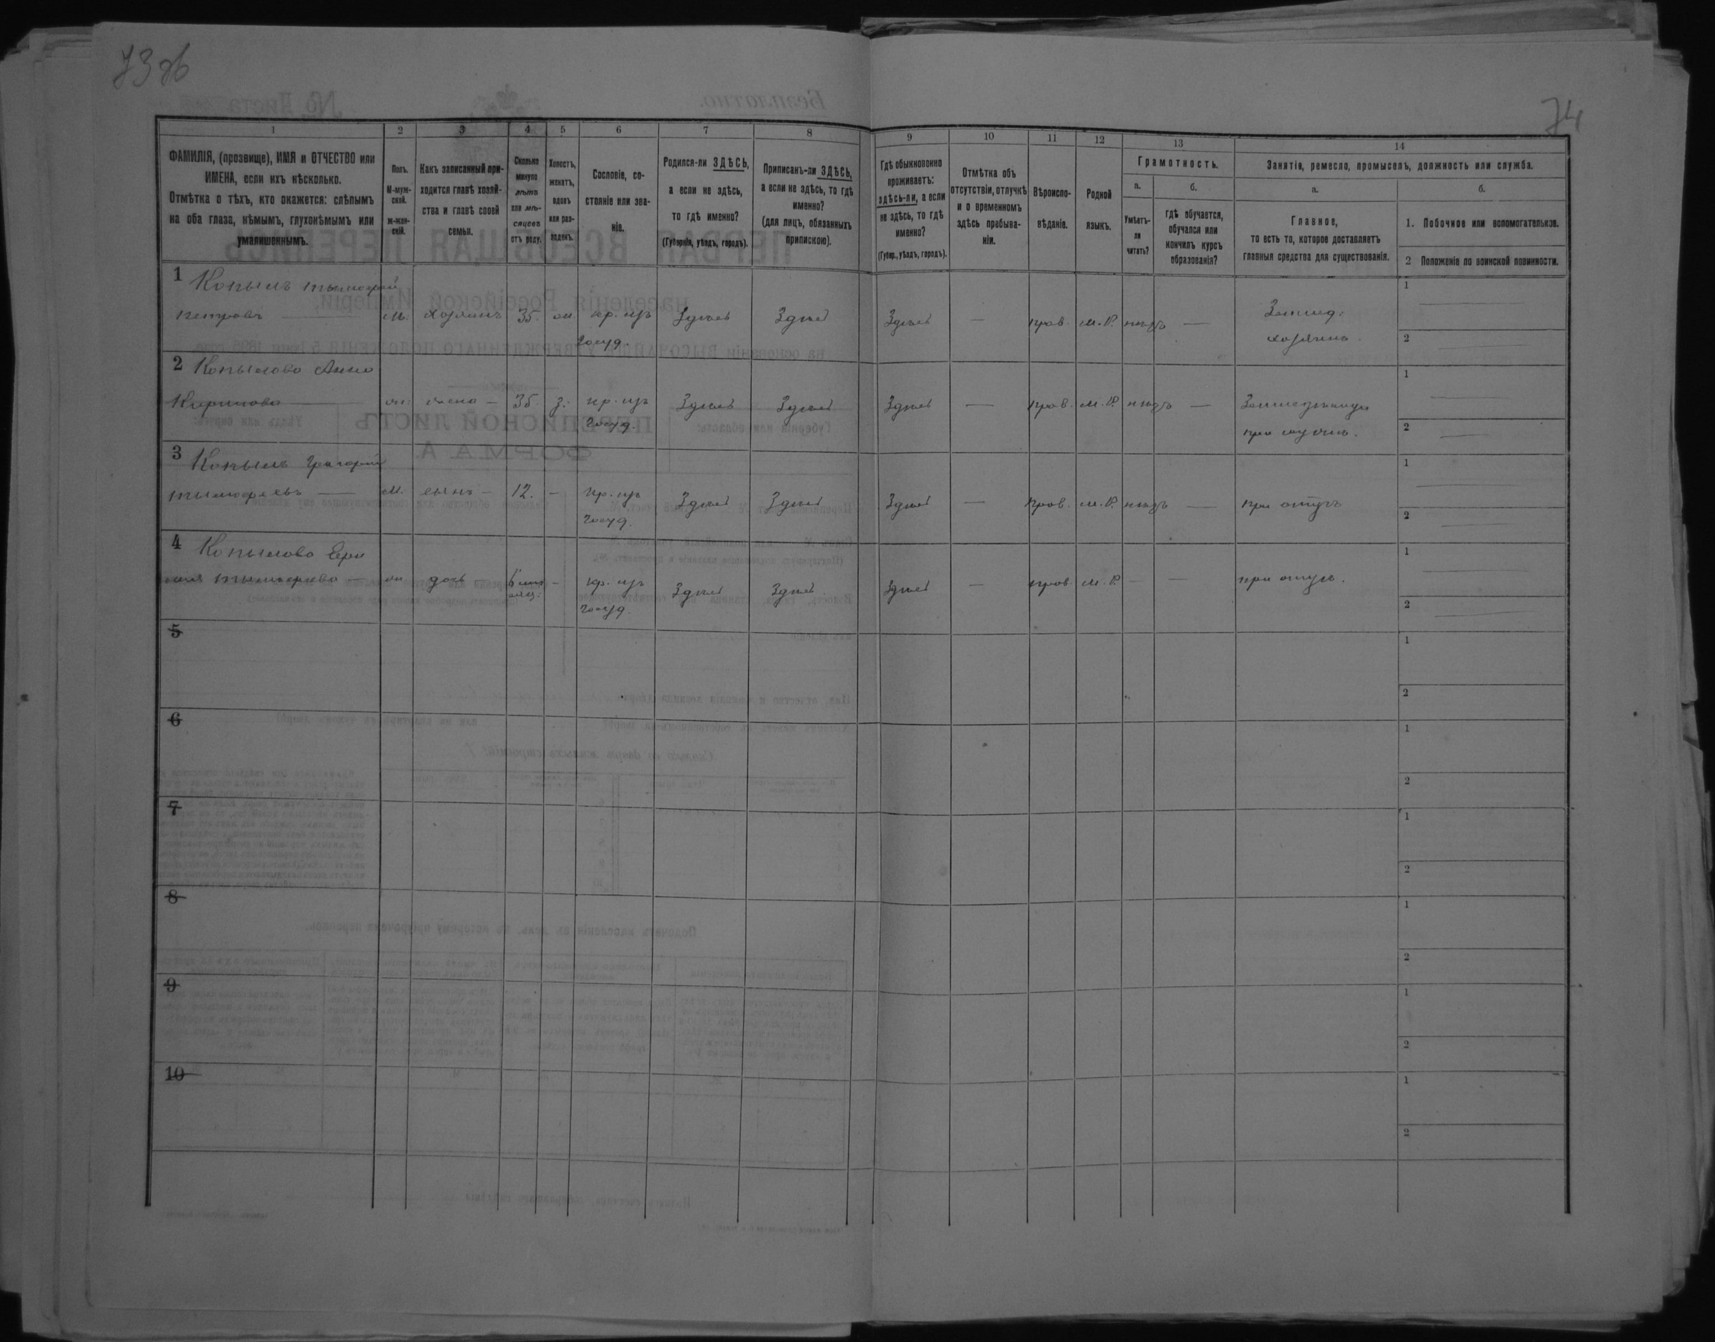 73 об
74
1
2
3
4
5
6
7
8
9
10
11
12
13
14
ФАМИЛІЯ, (прозвище), ИМЯ и ОТЧЕСТВО или
ИМЕНА, если ихъ нѣсколько.
Отмѣтка о тѣхъ, кто окажется: слѣпымъ
на оба глаза, нѣмымъ, глухонѣмымъ или
умалишеннымъ.
Полъ.
М-муж-
ской.
ж-жен-
скій.
Какъ записанный при-
ходится главѣ хозяй-
ства и главѣ своей
семьи.
Сколько
минуло
лѣтъ
или мѣ-
сяцевъ
отъ роду.
Холостъ,
женатъ,
вдовъ
или раз-
веденъ.
Сословіе, со-
стояніе или зва-
ніе.
Родился-ли ЗДѢСЬ,
а если не здѣсь,
то гдѣ именно?
(Губернія, уѣздъ, городъ).
Приписанъ-ли ЗДѢСЬ,
а если не здѣсь, то гдѣ
именно?
(для лицъ, обязанныхъ
припискою).
Гдѣ обыкновенно
проживаетъ:
здѣсь-ли, а если
не здѣсь, то гдѣ
именно?
(Губер., уѣздъ, городъ).
Отмѣтка объ
отсутствіи, отлучкѣ
и о временномъ
здѣсь пребыва-
ніи.
Вѣроиспо-
вѣданіе.
Родной
языкъ.
Грамотность.
а.
б.
Умѣетъ-
ли
читать?
гдѣ обучается,
обучался или
кончилъ курсъ
образованія?
Занятія, ремесло, промыселъ, должность или служба.
а.
б.
Главное,
то есть то, которое доставляетъ
главныя средства для существованія.
1. Побочное или вспомогательное.
2 Положеніе по воинской повинности.
1 Копылъ Тимофей
Петровъ — м. хозяинъ 35. ж. кр. изъ
госуд. Здѣсь Здѣсь Здѣсь — прав. м.р. нѣтъ —
хозяинъ.
1
2
2 Копылова Анна
— ж. жена – 35. з. кр. изъ
госуд. Здѣсь Здѣсь Здѣсь — прав. м.р. нѣтъ —
при мужѣ.
1
2
3 Копылъ Григорій
Тимофеевъ — м. сынъ – 12. – кр. изъ
госуд. Здѣсь Здѣсь Здѣсь — прав. м.р. нѣтъ — при отцѣ
1
2
4 Копылова
Тимофеева — ж. дочь – кр. изъ
госуд. Здѣсь Здѣсь Здѣсь — прав. м.р. – — при отцѣ.
1
2
5
1
2
6
1
2
7
1
2
8
1
2
9
1
2
10
1
2